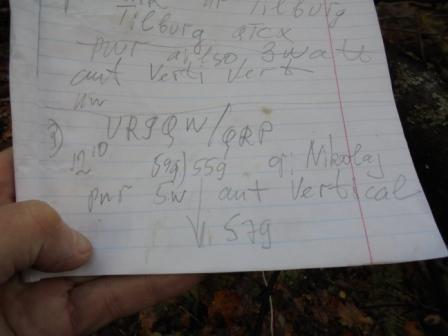 Tilburg
Tilburg
pwr 3watt
ant Verti Vert
3) UR9QW/QRP
12 10 599/559 op: Nikolaj
pwr 5w ant Vertical
579